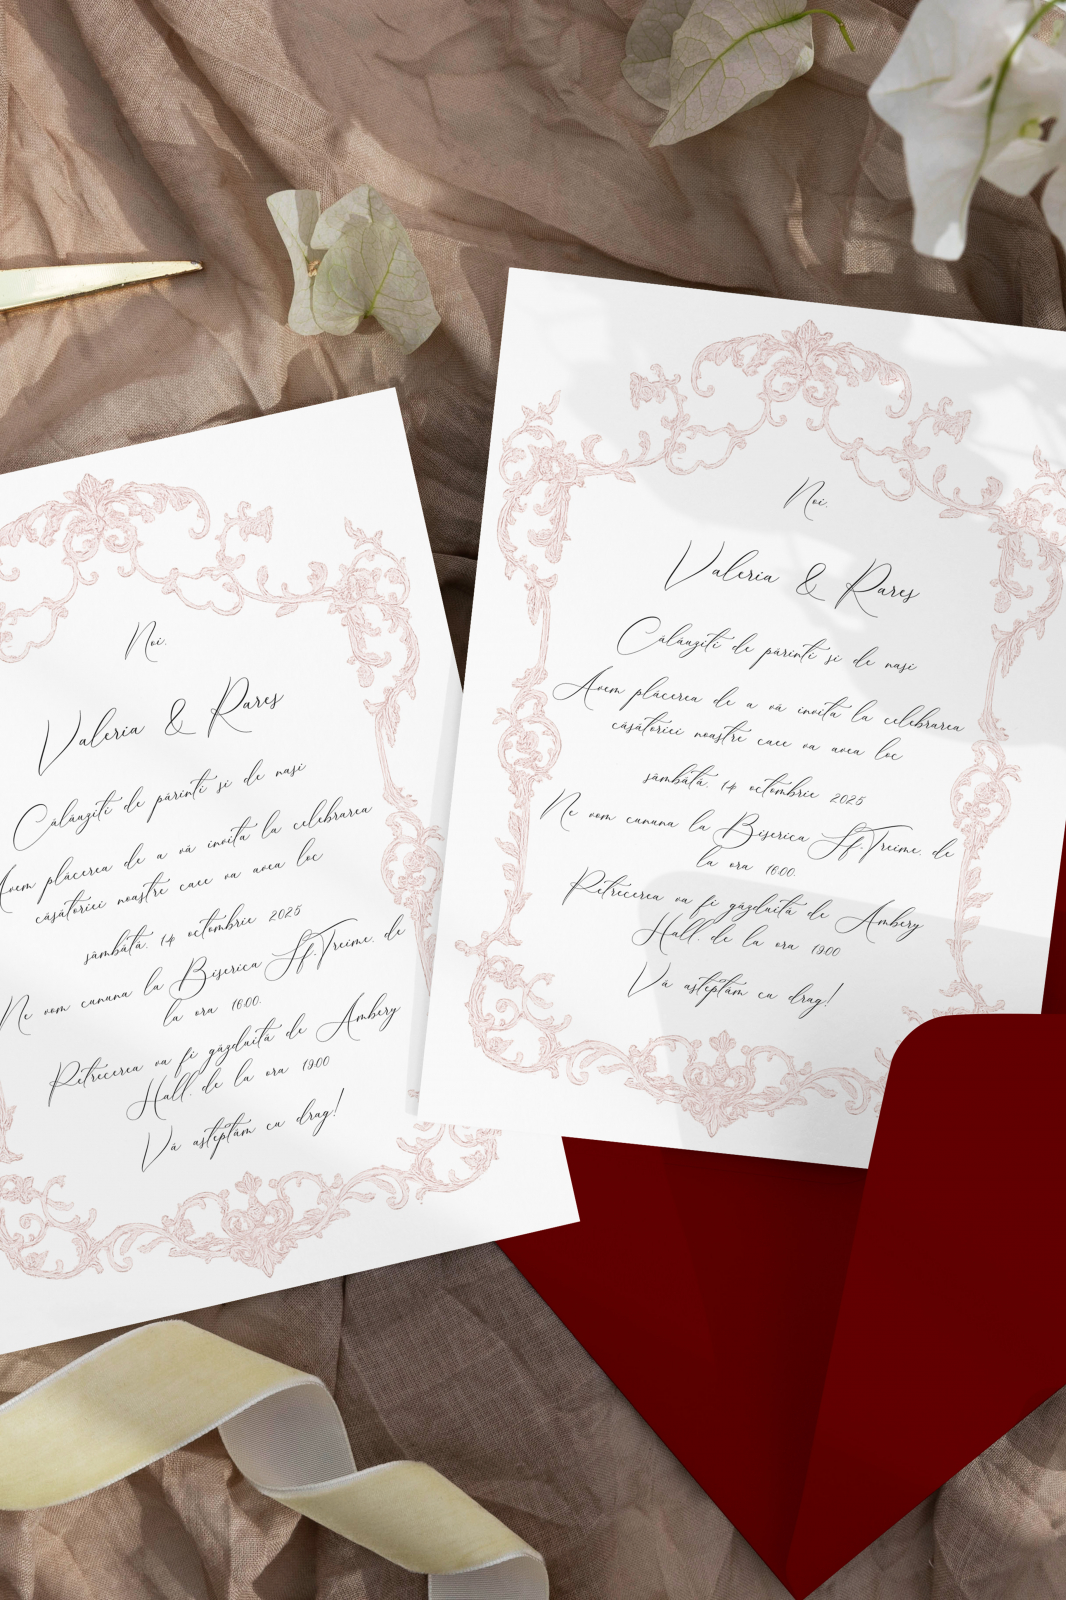 Noi,
Valeria & Rares
Călăuziti de părinti si de nasi
Avem plăcerea de a vă invita la celebrarea
căsătoriei noastre care va avea loc
sâmbătă, 14 octombrie 2025
Ne vom cununa la Biserica Sf.Treime, de
la ora 16:00.
Petrecerea va fi găzduită de Ambery
Hall, de la ora 19:00
Vă asteptăm cu drag!
Noi,
Valeria & Rares
Călăuziti de părinti si de nasi
Avem plăcerea de a vă invita la celebrarea
căsătoriei noastre care va avea loc
sâmbătă, 14 octombrie 2025
Ne vom cununa la Biserica Sf.Treime, de
la ora 16:00.
Petrecerea va fi găzduită de Ambery
Hall, de la ora 19:00
Vă asteptăm cu drag!